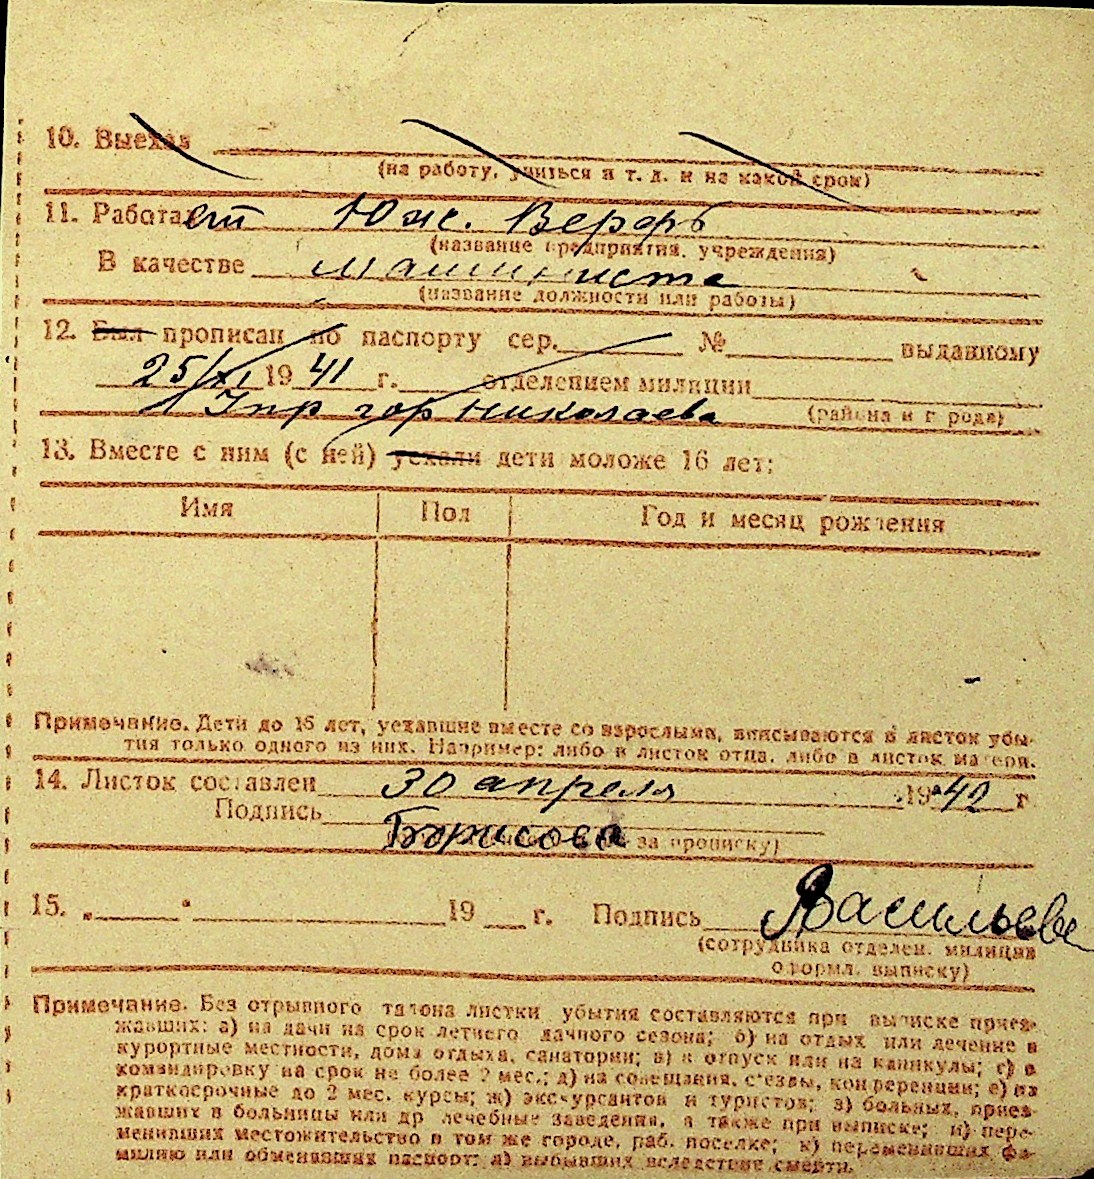 10. Выехал
(на работу, учиться и т. д. и на какой срок)
11. Работает Юж. Верфь
(название предприятия, учреждения)
В качестве машиниста
(название должности или работы)
12. Был прописан по паспорту сер. № выданному
25/XI 1941 г. отделением милиции
Упр гор Николаева (района и города)
13. Вместе с ним (с ней) уехали дети моложе 16 лет:
Имя Пол Год и месяц рождения
Примечание. Дети до 16 лет, уехавшие вместе со взрослыми, вписываются в листок убы-
тия только одного из них. Например: либо в листок отца, либо в листок матери.
14. Листок составлен 30 апреля 1942 г
Подпись Борисова
за прописку)
15. „ " 19 г. Подпись Васильева
(сотрудника отделен. милиции
оформл. выписку)
Примечание. Без отрывного талона листки убытия составляются при выписке приез-
жавших: а) на дачи на срок летнего дачного сезона; б) на отдых или лечение в
курортные местности, дома отдыха, санатории; в) в отпуск или на каникулы; г) в
командировку на срок не более 2 мес.; д) на совещания, съезды, конференции; е) на
краткосрочные до 2 мес. курсы; ж) экскурсантов и туристов; з) больных, приез-
жавших в больницы или др лечебные заведения, а также при выписке; и) пере-
менивших местожительство в том же городе, раб. поселке; к) переменивших фа-
милию или обменявших паспорт; л) выбывших вследствие смерти.